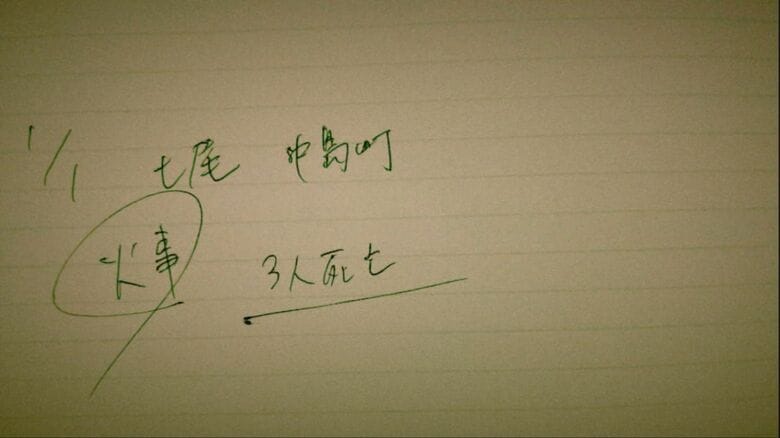 1/1 七尾 中島町
火事 3人死亡